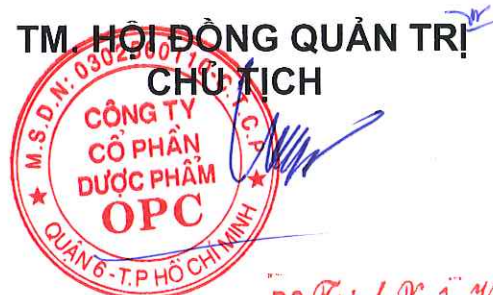 TM. HỘI ĐỒNG QUẢN TRỊ
CHỦ TỊCH
M.S.D.N: 0302560110-C.T.C.P
CÔNG TY
CỔ PHẦN
DƯỢC PHẨM
OPC
QUẬN 6 - T.P HỒ CHÍ MINH